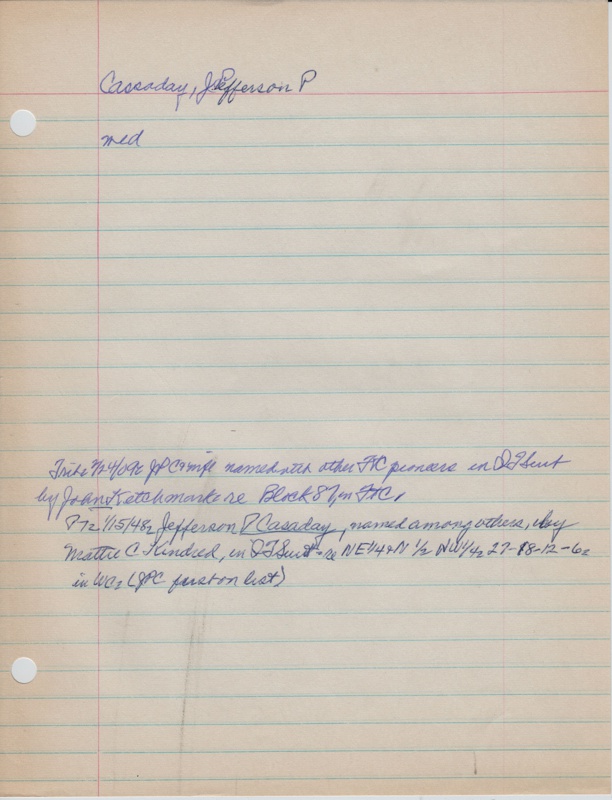 Cassaday, Jefferson P
med
Tribe 4/09 JPC named with other FtC pioneers in QTSuit
by John Ketchmark re Block 87, in FtC,
P72 1/15/48, Jefferson P Casaday, named among others, by
Mattie C Kindred, in QTSuit re NE1/4 & N 1/2 NW1/4, 27-18-12-6,
in WC, (JPC first on list)